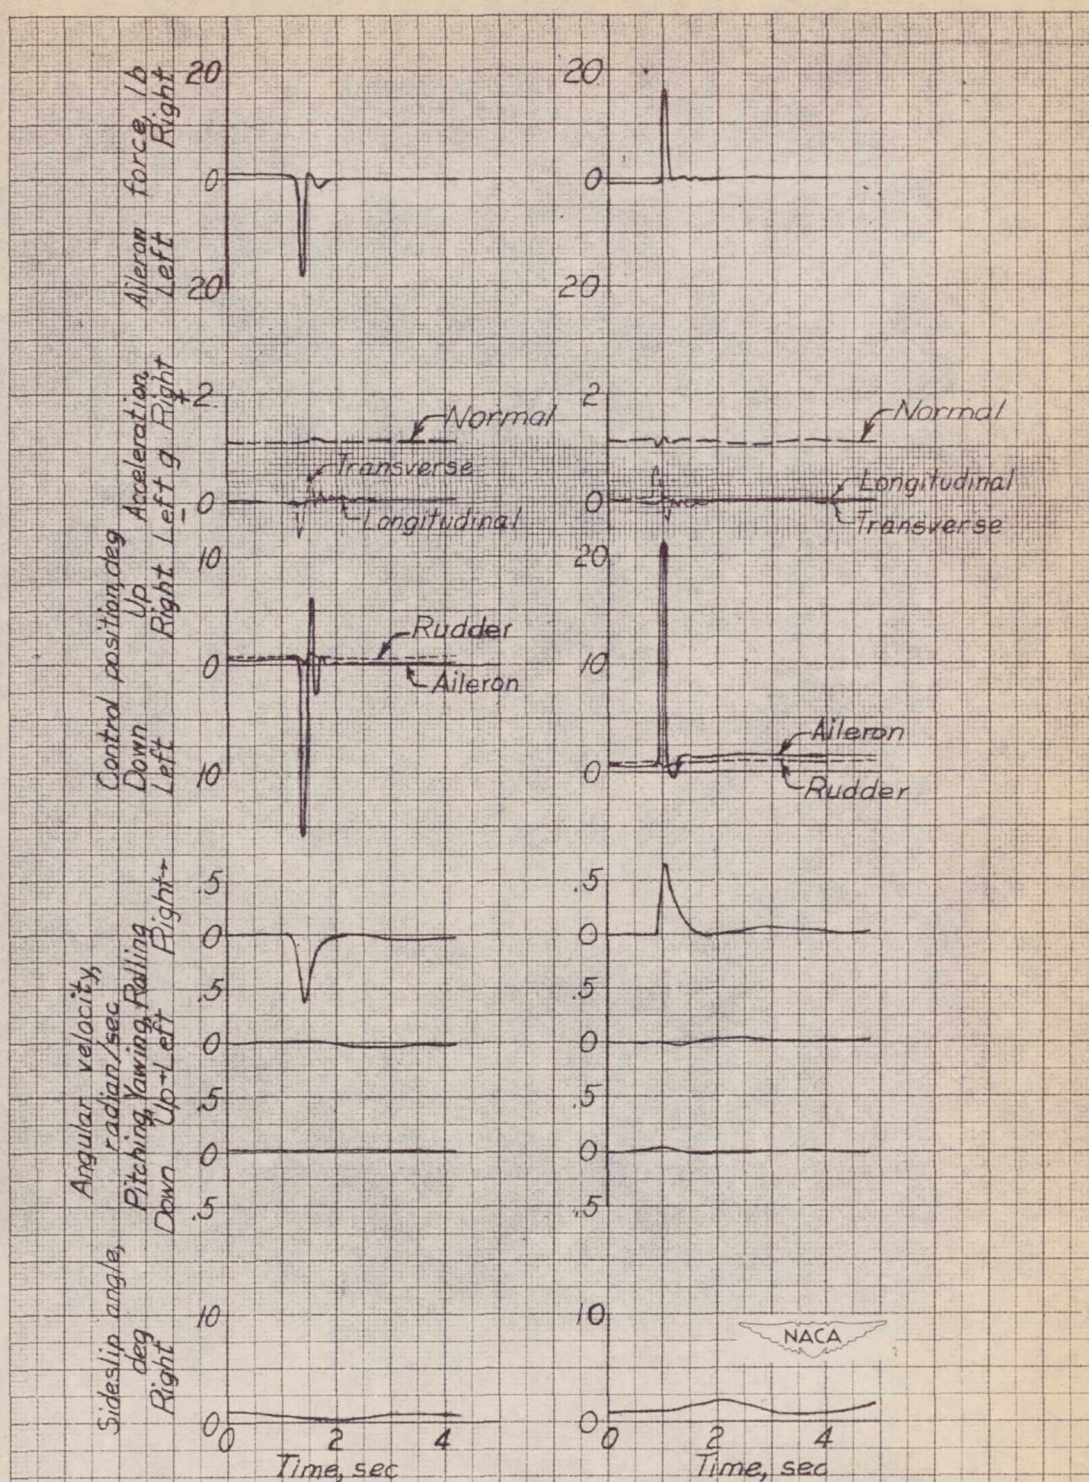 Aileron force, lb
Left Right
20
0
20
20
0
20
Acceleration, g
Left Right
- +
2
0
Normal
Transverse
Longitudinal
2
0
Normal
Longitudinal
Transverse
Control position, deg
Down Up
Left Right
10
0
10
Rudder
Aileron
20
10
0
Aileron
Rudder
Angular velocity,
radian/sec
Pitching, Yawing, Rolling
Down Up Left Right
.5
0
.5
0
.5
0
.5
.5
0
.5
0
.5
0
.5
Sideslip angle,
deg
Right
10
0
10
0
NACA
0 2 4
Time, sec
0 2 4
Time, sec